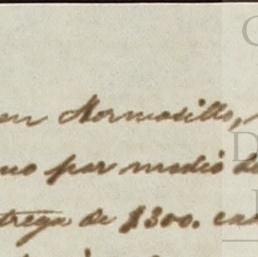 en Hermosillo,
no por medio de
trega de $300. ca